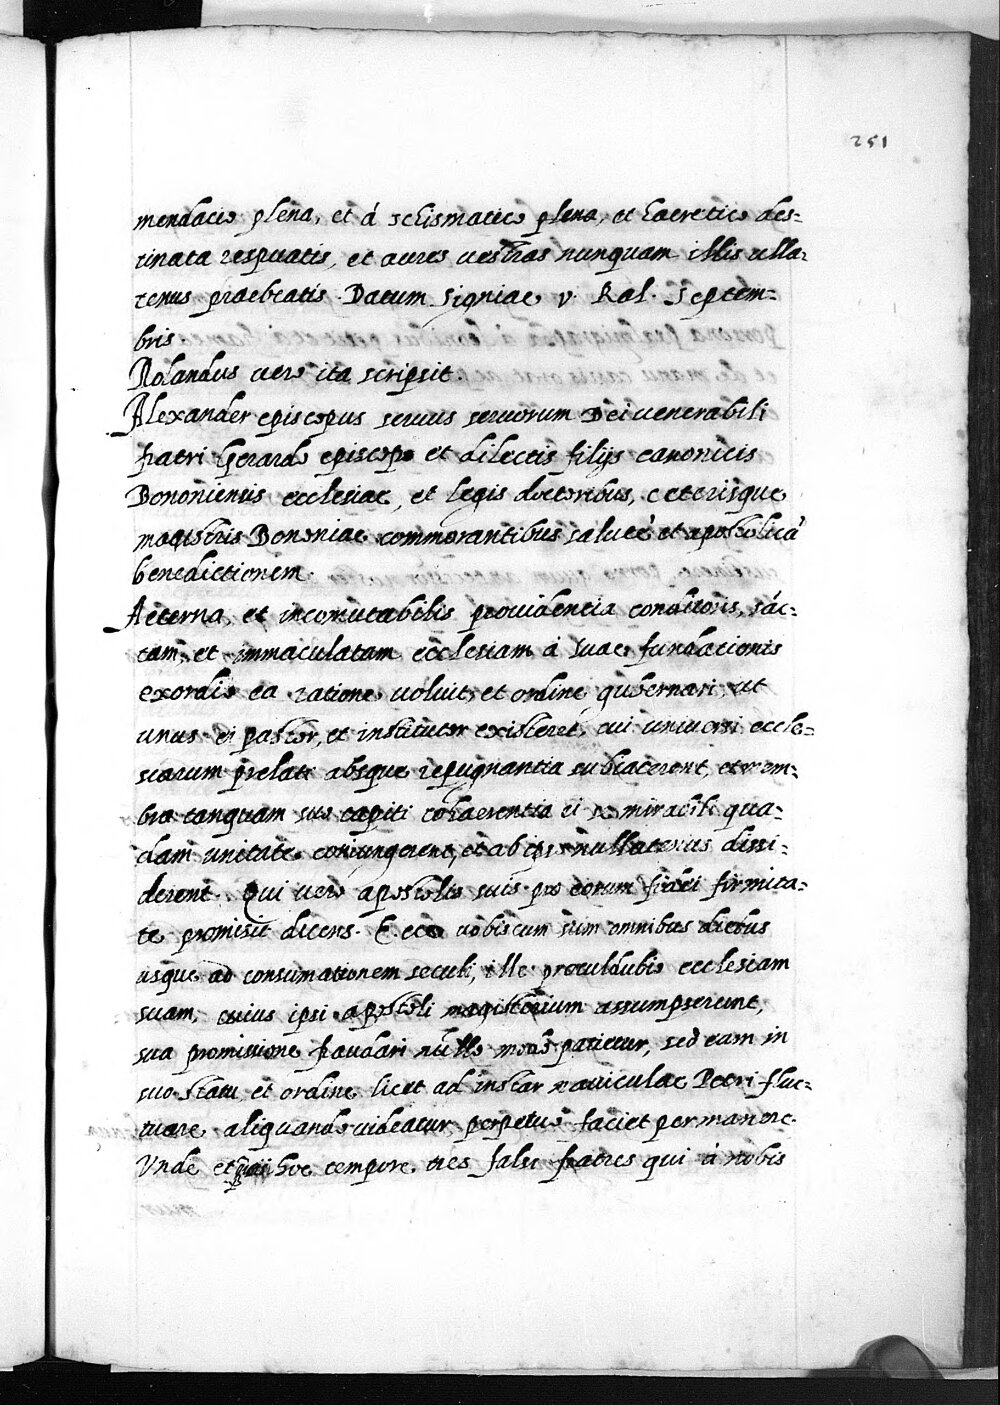 251
mendacio plena, et á schismatico plena, et haeretico des=
tinata respuatis, et aures vestras nunquam illis ulla=
tenus praebeatis. Datum Signiae v. Kal. Septem=
bris
Rolandus vero ita scripsit.
Alexander episcopus servus servorum Dei venerabili
fratri Gerardo episcopo et dilectis filijs canonicis
Bononiensis ecclesiae, et legis doctoribus, ceterisque
magistris Bononiae commorantibus salutē et apostolicā
benedictionem.
Aeterna, et incomutabilis providentia conditoris, sāc=
tam, et immaculatam ecclesiam á suae fundationis
exordio ea ratione voluit, et ordine gubernari, ut
unus ei pastor, et institutor existeret, cui universi eccle=
siarum prelati absque repugnantia subiacerent, et mem=
bra tanquam suo capiti cohaerentia ei se mirabili qua=
dam unitate coniungerent, et ab ipso nullatenus dissi=
derent. Qui vero apostolis suis pro eorum fidei firmita=
te promisit dicens. Ecce vobiscum sum omnibus diebus
usque ad consumationem seculi, ille proculdubio ecclesiam
suam, cuius ipsi apostoli magisterium assumpserunt,
sua promissione fraudari nullo modo patietur, sed eam in
suo statu, et ordine licet ad instar naviculae Petri fluc=
tuare aliquando videatur perpetuo faciet permanere.
Unde et hoc tempore tres falsi fratres qui á nobis